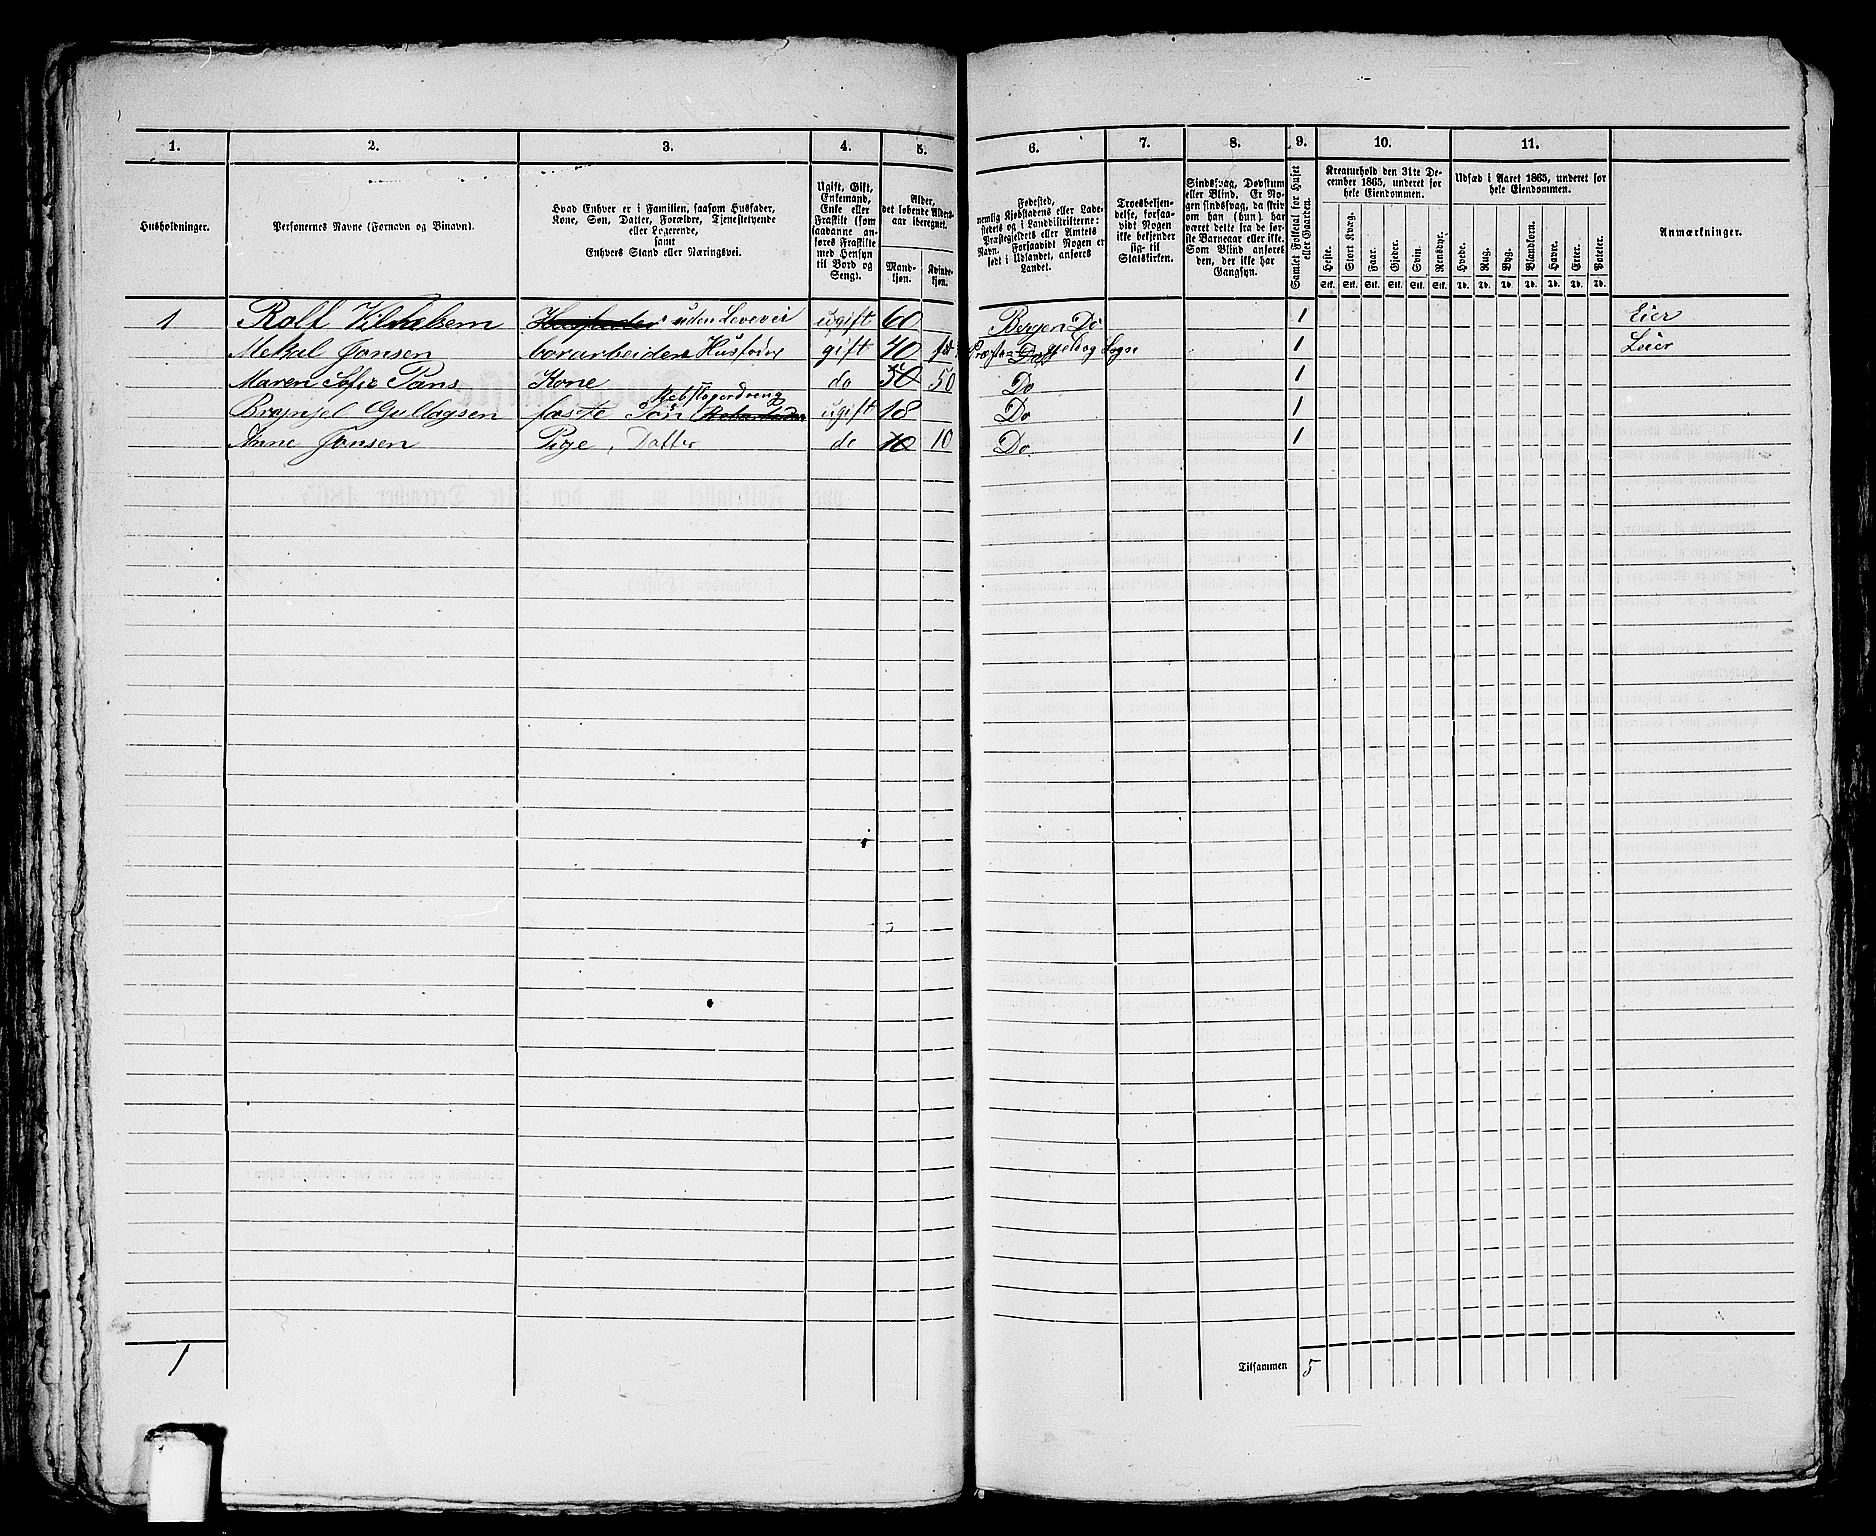 1. 2. 3. 4. 5. 6. 7. 8. 9. 10. 11.
Husholdninger.
Personernes Navne (Fornavn og Binavn).
Hvad Enhver er i Familien, saasom Husfader,
Kone, Søn, Datter, Forældre, Tjenestetyende
eller Logerende,
samt
Enhvers Stand eller Næringsvei.
Ugift, Gift,
Enkemand,
Enke eller
Fraskilt (som
saadanne an-
føres Fraskilte
med Hensyn
til Bord og
Seng).
Alder,
det løbende Alders-
aar iberegnet.
Mand-
kjøn.
Kvinde-
kjøn.
Fødested,
nemlig Kjøbstadens eller Lade-
stedets og i Landdistrikterne:
Præstegjeldets eller Amtets
Navn. Forsaavidt Nogen er
født i Udlandet, anføres
Landet.
Troesbekjen-
delse, forsaa-
vidt Nogen
ikke bekjender
sig til
Statskirken.
Sindssvag, Døvstum
eller Blind. Er No-
gen sindssvag, da skriv
om han (hun) har
været dette fra de før-
ste Barneaar eller ikke.
Som Blind anføres
den, der ikke har
Gangsyn.
Samlet Folketal for Huset
eller Gaarden.
Kreaturhold den 31te De-
cember 1865, underet for
hele Eiendommen.
Heste. Stort Kvæg. Faar. Gjeder. Svin. Rensdyr.
Stk. Stk. Stk. Stk. Stk. Stk.
Udsæd i Aaret 1865, underet for
hele Eiendommen.
Hvede. Rug. Byg. Blandkorn. Havre. Erter. Poteter.
Td. Td. Td. Td. Td. Td. Td.
Anmærkninger.
1 Rolf uden Levevei ugift 60 Bergen Do 1 Eier
Mekal Jonsen Husfader gift 40 1 Leier
Maren Sofie Kone do 50 50 Do 1
Gullagsen Søn Rebslagerdreng ugift 18 Do 1
Anne Jonsen Pige, Datter do 10 10 Do 1
1
Tilsammen 5